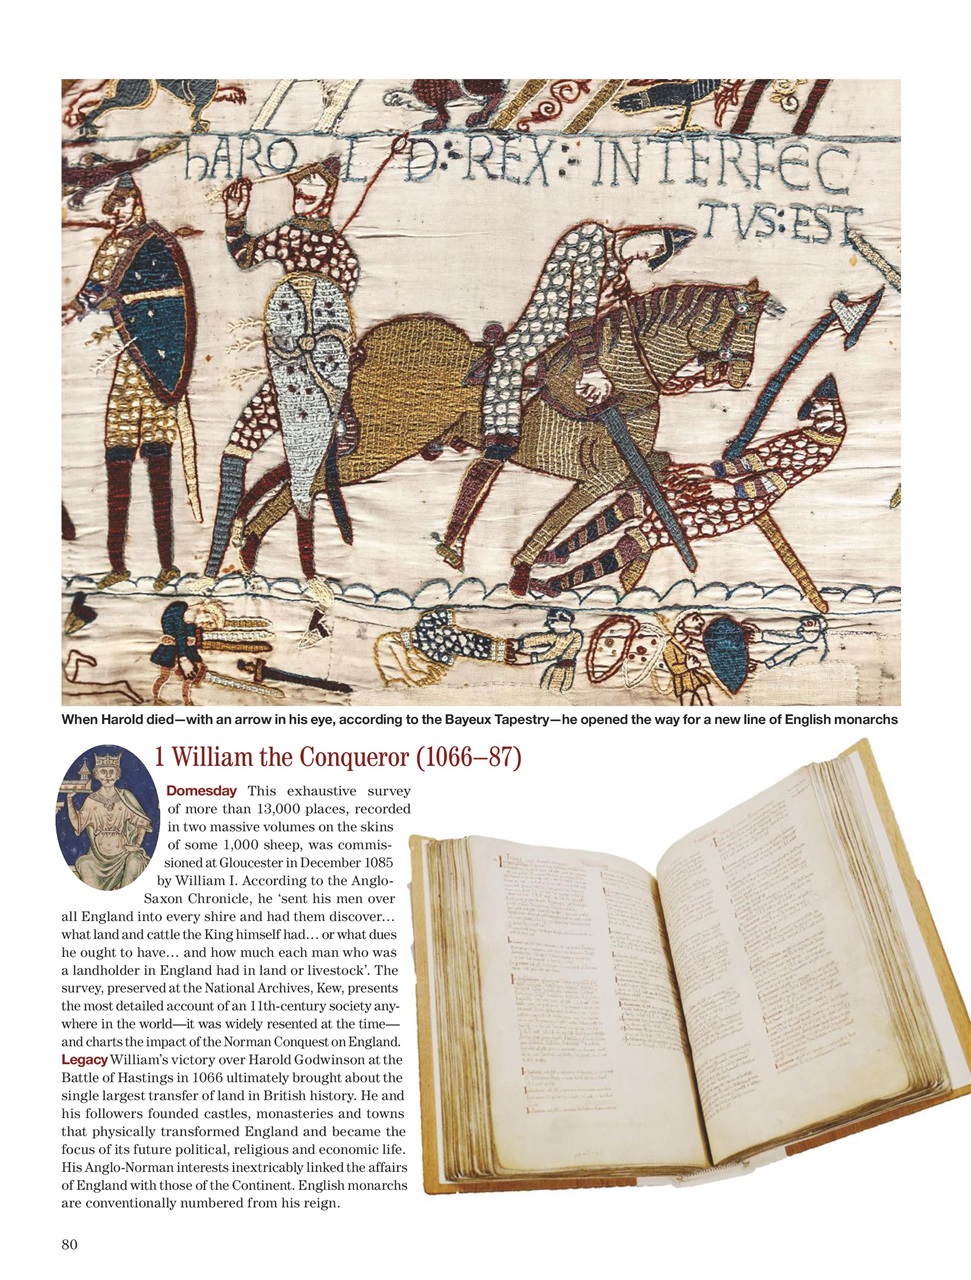 hAROLD:REX:INTERFEC
TVS:EST
When Harold died—with an arrow in his eye, according to the Bayeux Tapestry—he opened the way for a new line of English monarchs
1 William the Conqueror (1066–87)
Domesday This exhaustive survey
of more than 13,000 places, recorded
in two massive volumes on the skins
of some 1,000 sheep, was commis-
sioned at Gloucester in December 1085
by William I. According to the Anglo-
Saxon Chronicle, he ‘sent his men over
all England into every shire and had them discover…
what land and cattle the King himself had… or what dues
he ought to have… and how much each man who was
a landholder in England had in land or livestock’. The
survey, preserved at the National Archives, Kew, presents
the most detailed account of an 11th-century society any-
where in the world—it was widely resented at the time—
and charts the impact of the Norman Conquest on England.
Legacy William’s victory over Harold Godwinson at the
Battle of Hastings in 1066 ultimately brought about the
single largest transfer of land in British history. He and
his followers founded castles, monasteries and towns
that physically transformed England and became the
focus of its future political, religious and economic life.
His Anglo-Norman interests inextricably linked the affairs
of England with those of the Continent. English monarchs
are conventionally numbered from his reign.
80